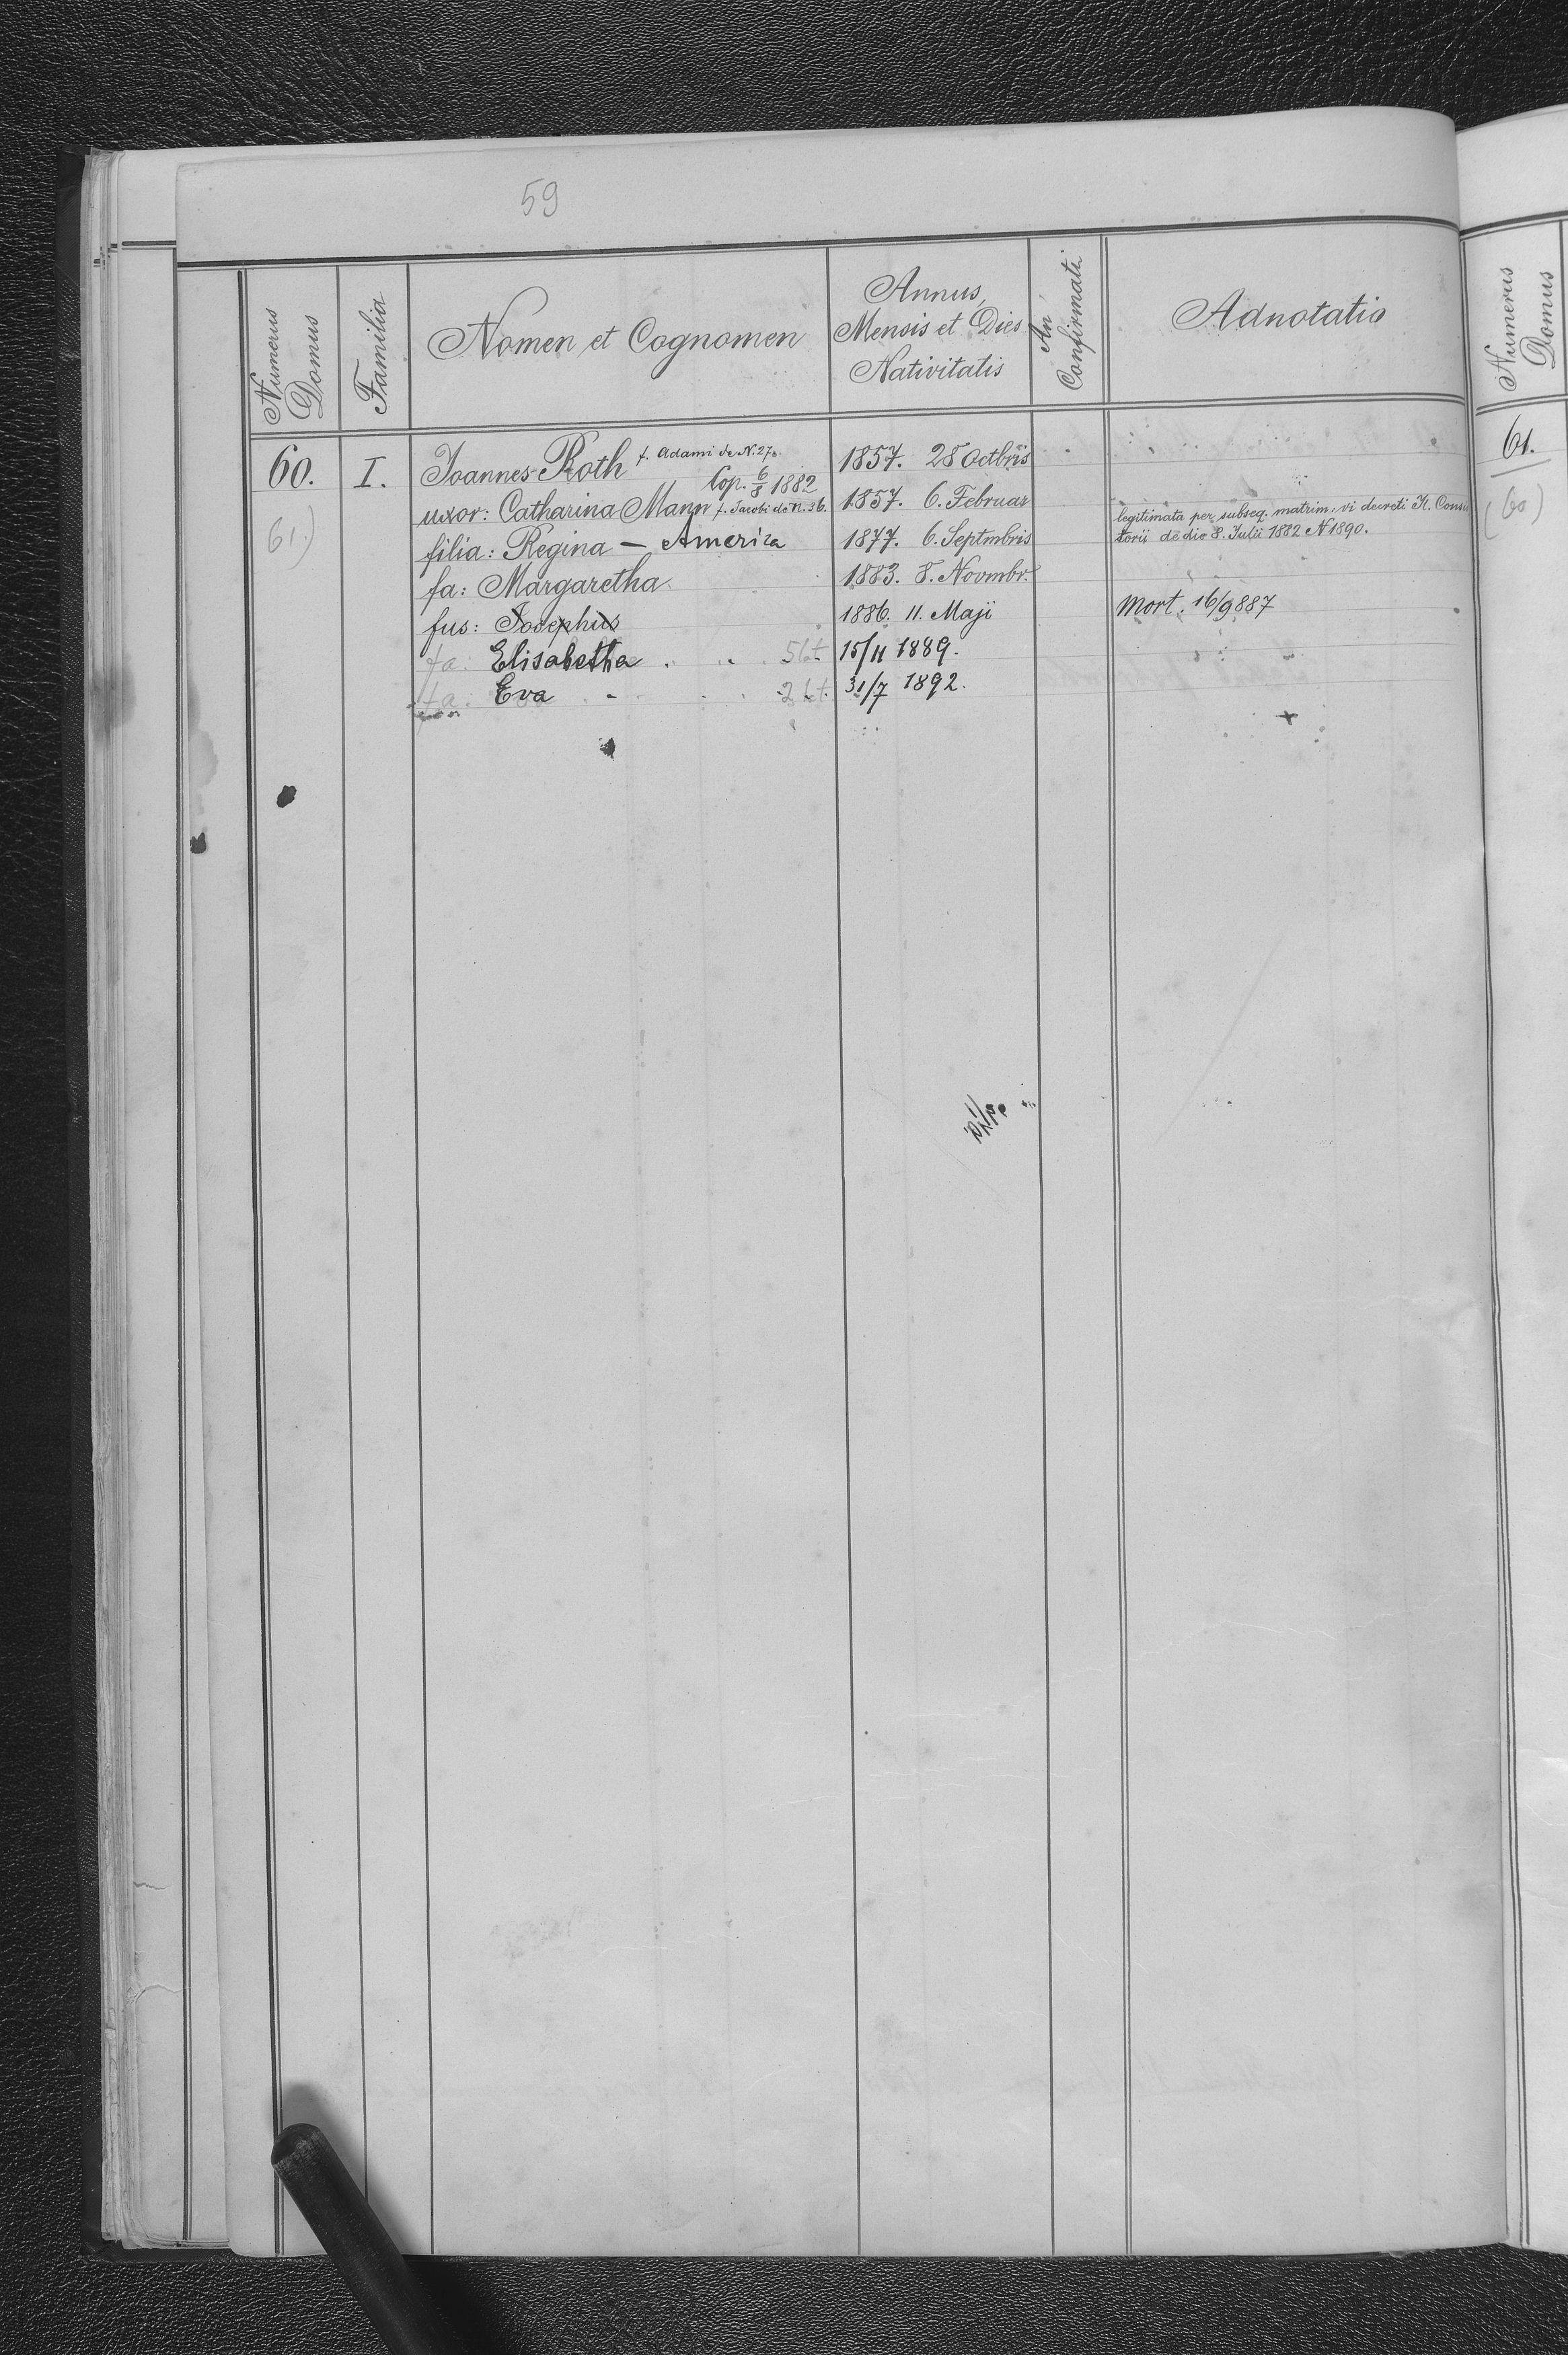 59
Numerus Domus
Familia
Nomen et Cognomen
Annus,
Mensis et Dies
Nativitatis
An Confirmati
Adnotatio
Numerus Domus
60. I. Joannes Roth f. Adami de N. 27. 1857. 28 Octbris
Cop. 6/8 1882
uxor: Catharina Mann f. Jacobi de N. 36. 1857. 6. Februar
(61.) filia: Regina — America 1877. 6. Septmbris
legitimata per subseq. matrim. vi decreti
torii de dio 8. Julii 1882 N 1890.
fa: Margaretha 1883. 8. Novmbr.
fus: Josephus 1886. 11. Maji Mort. 16/9 887
fa: Elisabetha 15/11 1889.
fa: Eva 31/7 1892.
61.
(60)